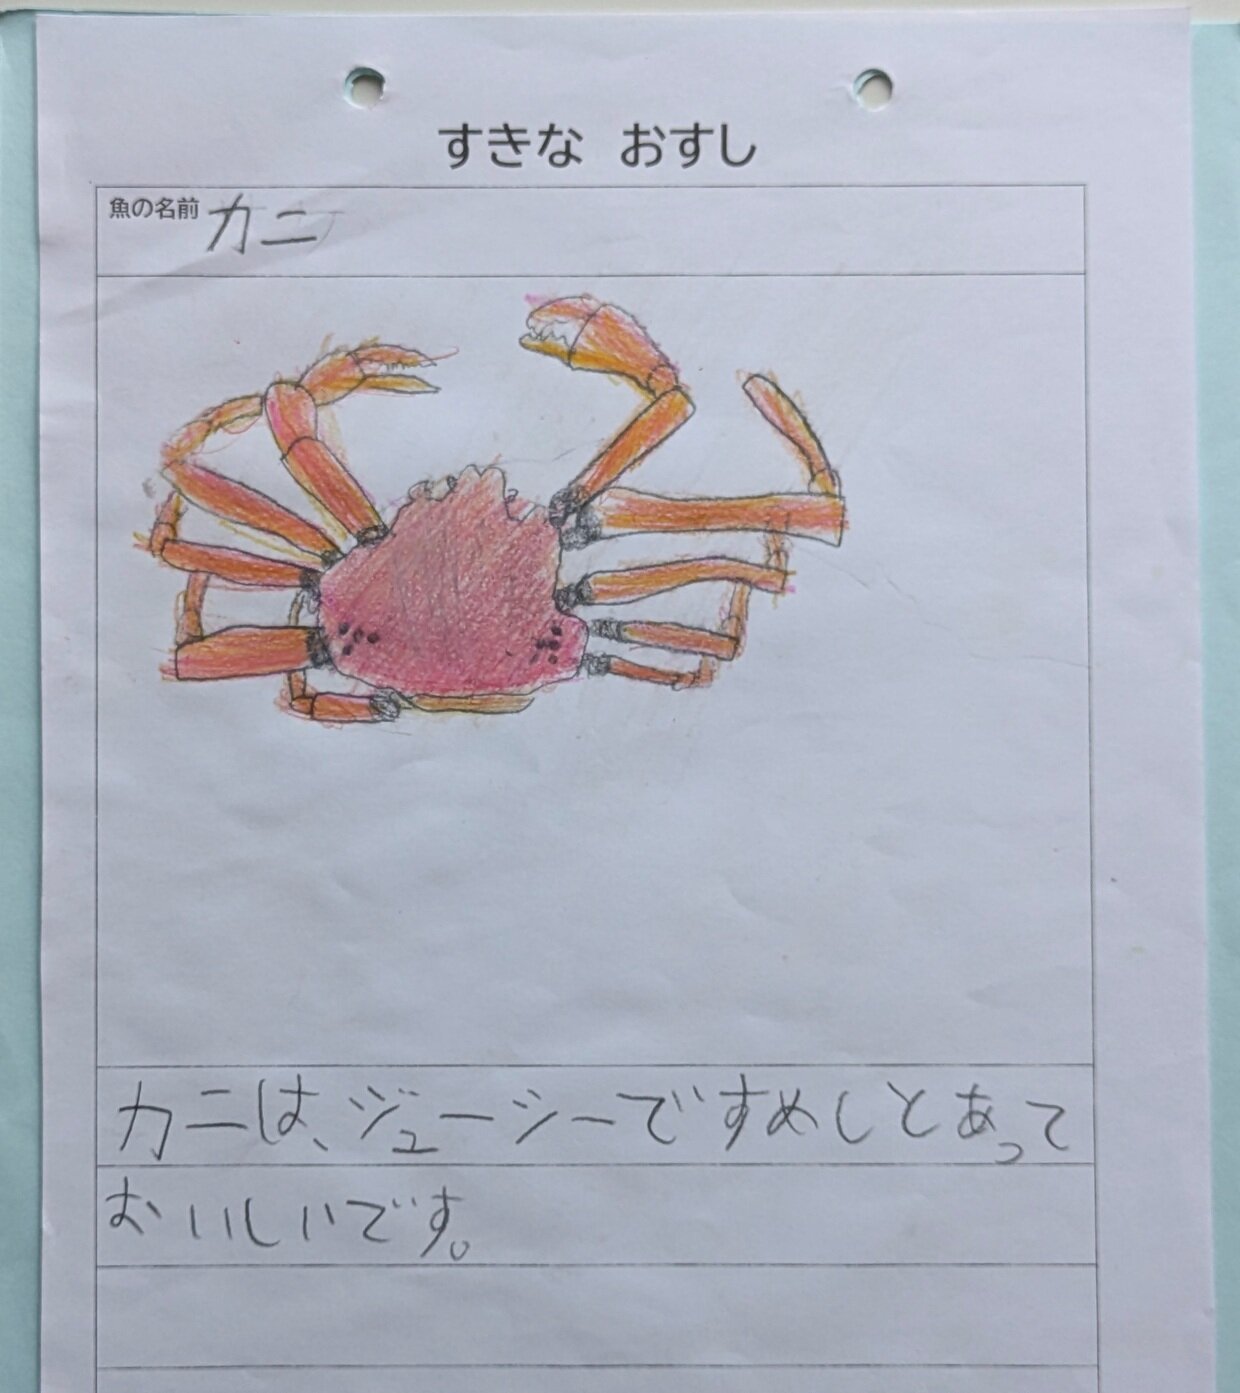 すきな おすし
魚の名前 カニ
カニは、ジューシーですめしとあって
おいしいです。